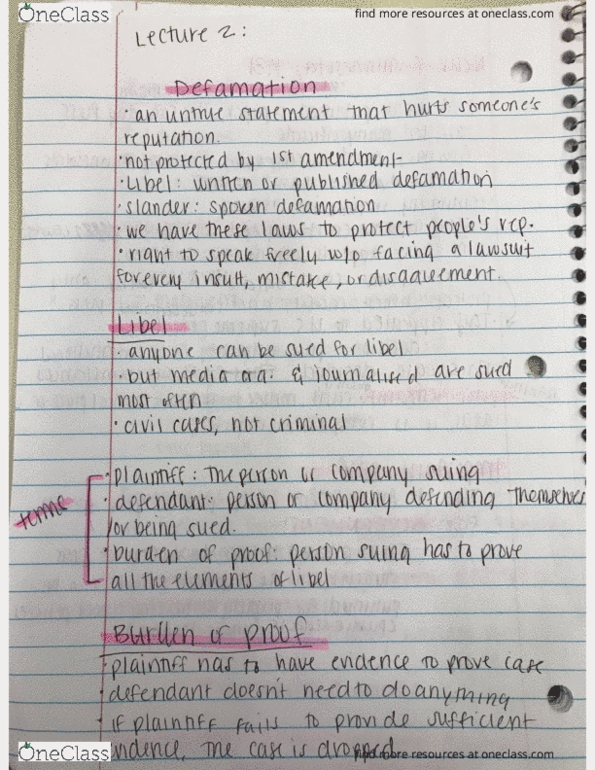 OneClass
find more resources at oneclass.com
Lecture 2:
Defamation
· an untrue statement that hurts someone's
reputation.
· not protected by 1st amendment
· Libel: written or published defamation
· slander: spoken defamation
· we have these laws to protect people's rep.
· right to speak freely w/o facing a lawsuit
for every insult, mistake, or disagreement.
Libel
· anyone can be sued for libel
· but media org. & are sued
most often
· civil cases, not criminal
terms
· plaintiff: The person or company suing
· defendant: person or company defending themselves
or being sued.
· burden of proof: person suing has to prove
all the elements of libel
Burden of proof
· plaintiff has to have evidence to prove case
· defendant doesn't need to do anything
· if plaintiff fails to provide sufficient
evidence, the case is dropped
OneClass
find more resources at oneclass.com